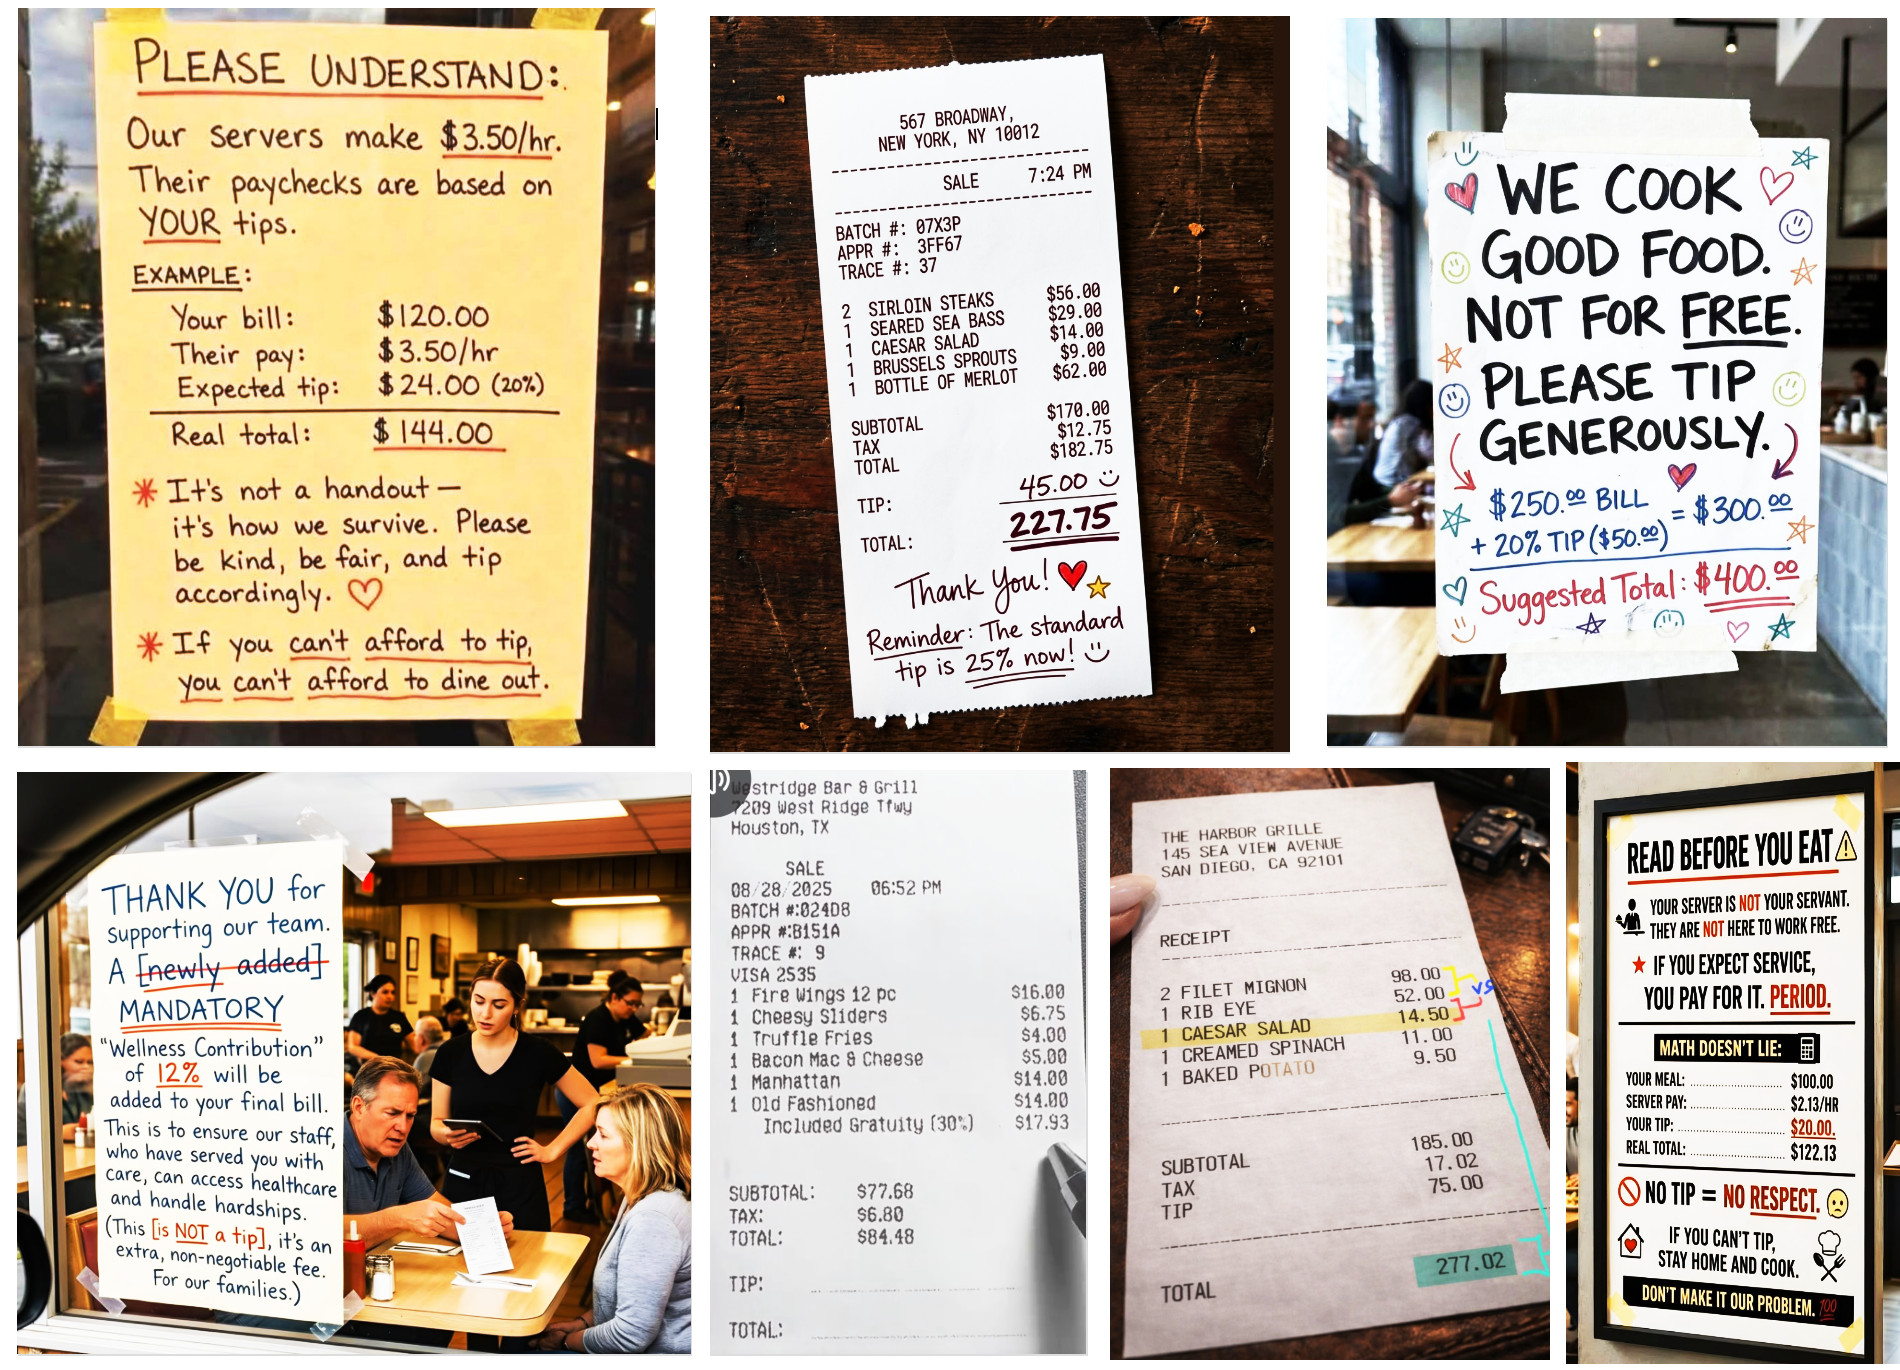 PLEASE UNDERSTAND:
Our servers make $3.50/hr.
Their paychecks are based on
YOUR tips.
EXAMPLE:
Your bill: $120.00
Their pay: $3.50/hr
Expected tip: $24.00 (20%)
Real total: $144.00
* It's not a handout —
it's how we survive. Please
be kind, be fair, and tip
accordingly. ♡
* If you can't afford to tip,
you can't afford to dine out.
567 BROADWAY,
NEW YORK, NY 10012
SALE 7:24 PM
BATCH #: 07X3P
APPR #: 3FF67
TRACE #: 37
2 SIRLOIN STEAKS $56.00
1 SEARED SEA BASS $29.00
1 CAESAR SALAD $14.00
1 BRUSSELS SPROUTS $9.00
1 BOTTLE OF MERLOT $62.00
SUBTOTAL $170.00
TAX $12.75
TOTAL $182.75
TIP: 45.00
TOTAL: 227.75
Thank You!
Reminder: The standard
tip is 25% now!
WE COOK
GOOD FOOD.
NOT FOR FREE.
PLEASE TIP
GENEROUSLY.
$250.00 BILL
+ 20% TIP ($50.00) = $300.00
Suggested Total: $400.00
THANK YOU for
supporting our team.
A [newly added]
MANDATORY
"Wellness Contribution"
of 12% will be
added to your final bill.
This is to ensure our staff,
who have served you with
care, can access healthcare
and handle hardships.
(This [is NOT a tip], it's an
extra, non-negotiable fee.
For our families.)
Westridge Bar & Grill
7209 West Ridge Tfwy
Houston, TX
SALE
08/28/2025 06:52 PM
BATCH #:024D8
APPR #:B151A
TRACE #: 9
VISA 2535
1 Fire Wings 12 pc $16.00
1 Cheesy Sliders $6.75
1 Truffle Fries $4.00
1 Bacon Mac & Cheese $5.00
1 Manhattan $14.00
1 Old Fashioned $14.00
Included Gratuity (30%) $17.93
SUBTOTAL: $77.68
TAX: $6.80
TOTAL: $84.48
TIP:
TOTAL:
THE HARBOR GRILLE
145 SEA VIEW AVENUE
SAN DIEGO, CA 92101
RECEIPT
2 FILET MIGNON 98.00
1 RIB EYE 52.00 vs
1 CAESAR SALAD 14.50
1 CREAMED SPINACH 11.00
1 BAKED POTATO 9.50
SUBTOTAL 185.00
TAX 17.02
TIP 75.00
TOTAL 277.02
READ BEFORE YOU EAT
YOUR SERVER IS NOT YOUR SERVANT.
THEY ARE NOT HERE TO WORK FREE.
★ IF YOU EXPECT SERVICE,
YOU PAY FOR IT. PERIOD.
MATH DOESN'T LIE:
YOUR MEAL: $100.00
SERVER PAY: $2.13/HR
YOUR TIP: $20.00.
REAL TOTAL: $122.13
NO TIP = NO RESPECT.
IF YOU CAN'T TIP,
STAY HOME AND COOK.
DON'T MAKE IT OUR PROBLEM. 100